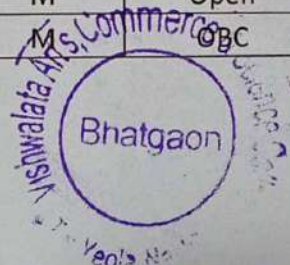 M Open
M OBC
Vishwalata Arts, Commerce & Science
Bhatgaon
Yeola